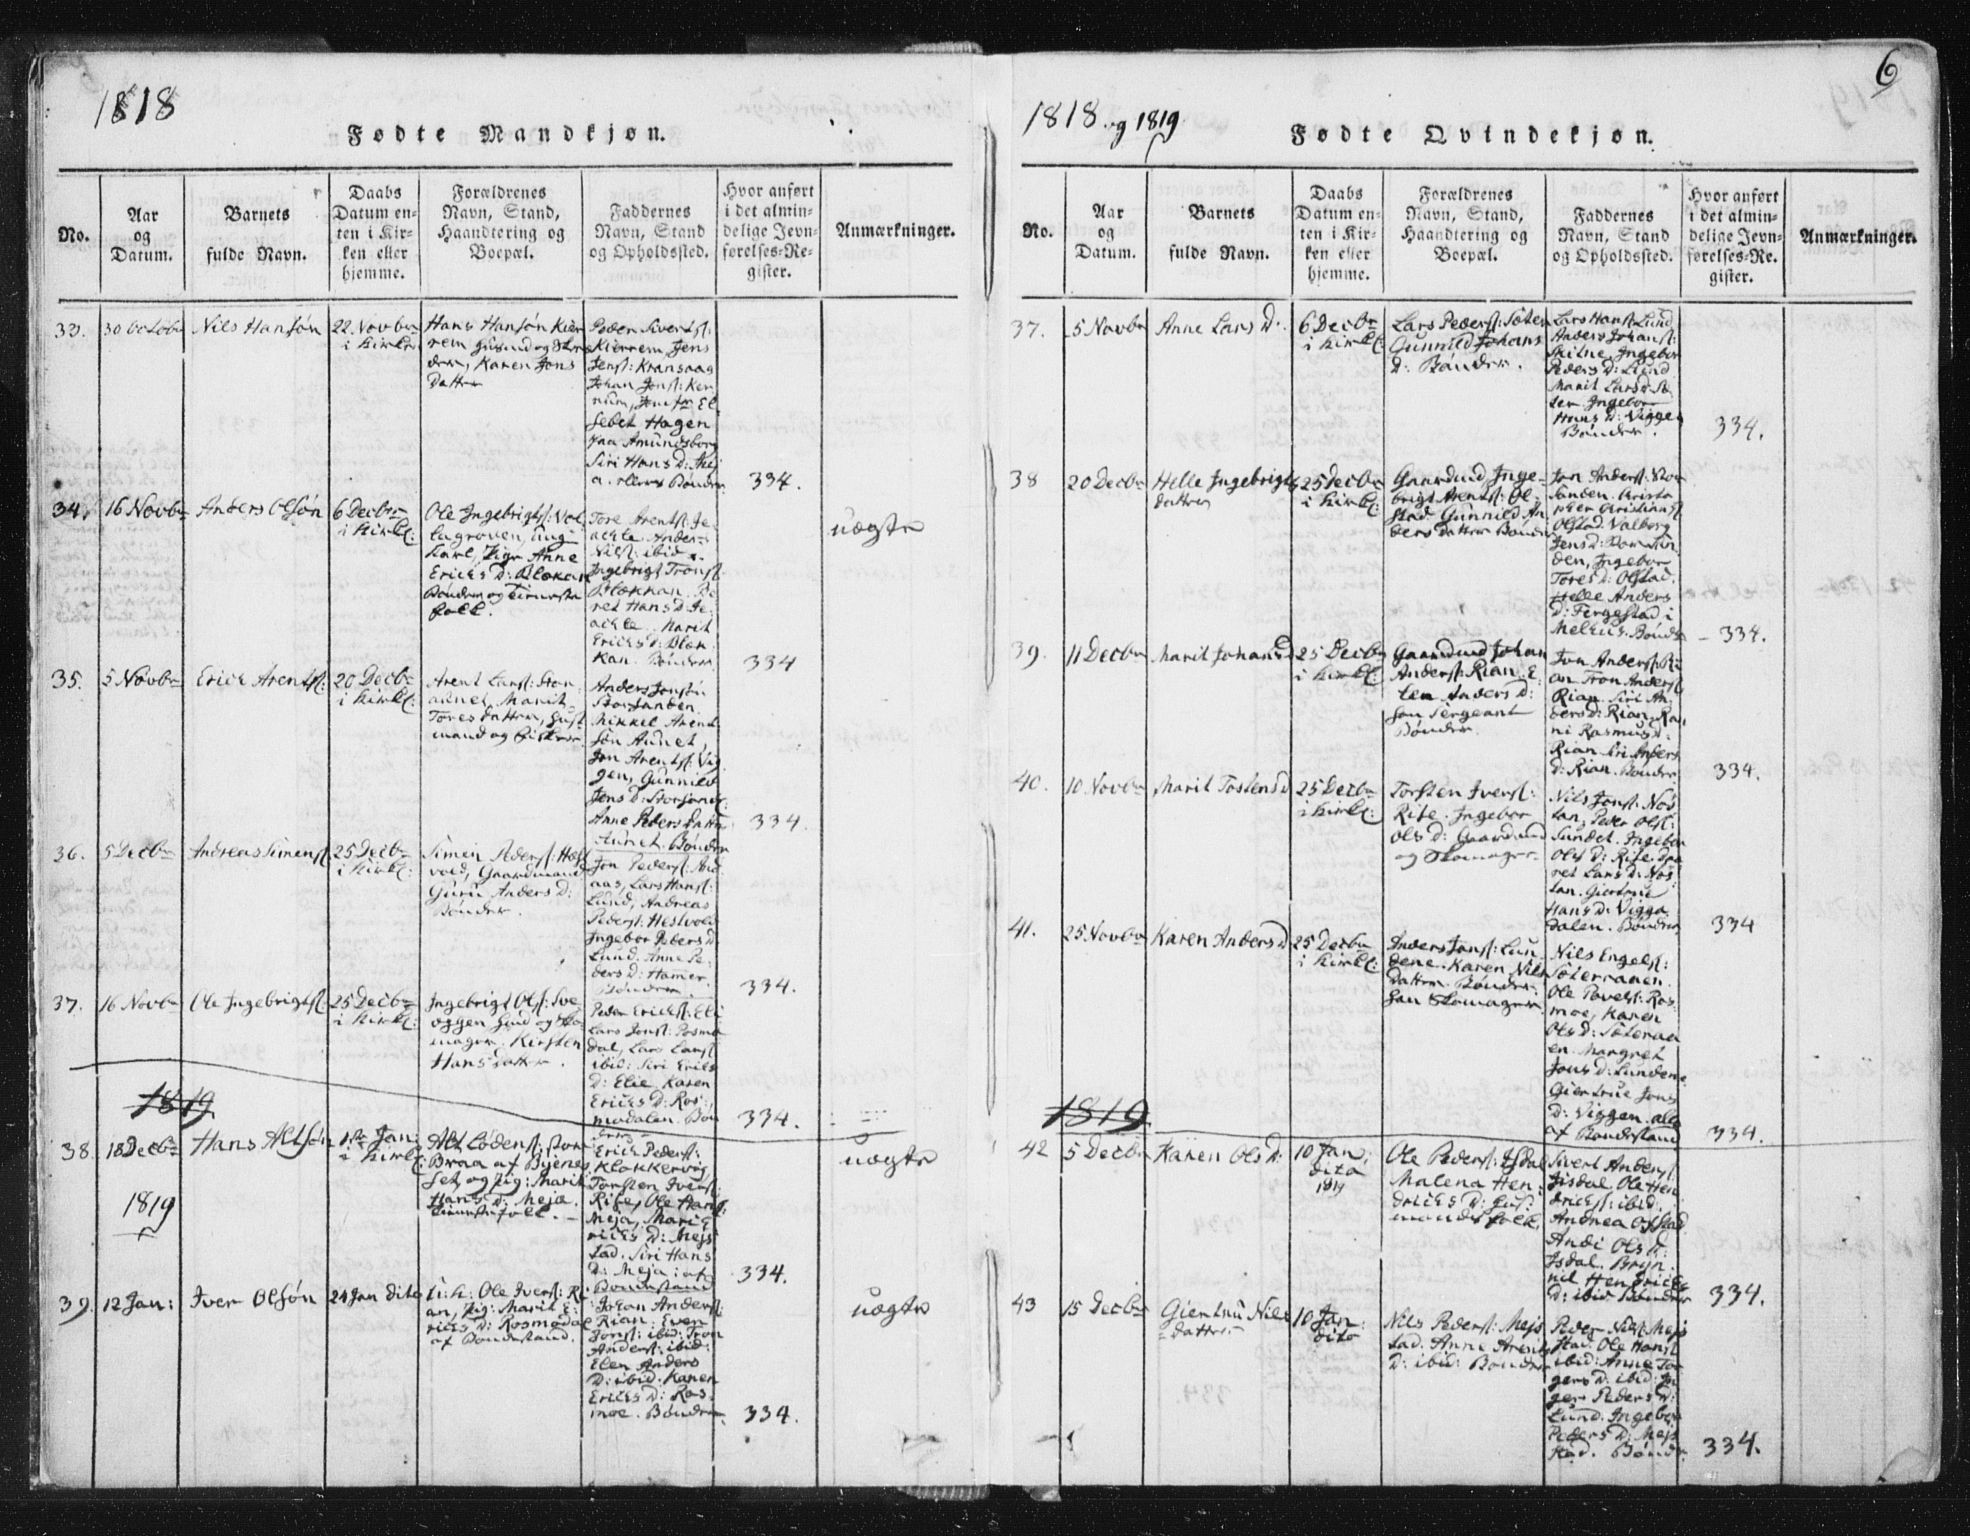 1818
Fødte Mandkjøn.
No.
Aar
og
Datum.
Barnets
fulde Navn.
Daabs
Datum en=
ten i Kir=
ken eller
hjemme.
Forældrenes
Navn, Stand,
Haandtering og
Boepæl.
Faddernes
Navn, Stand
og Opholdssted.
Hvor anført
i det almin=
delige Jevn=
førelses=Re=
gister.
Anmærkninger.
33.
30 October
Nils Hansøn
22. Novbr
i Kirk:
Hans Hansøn Kier
rem
der, Karen Jons
Datter
Peder Sivertss:
Kierrem, Jens
Jenss: Kransaag
Johan Jonss:
sebet Hagen
paa Amundsborg
Siri Hans D:
334.
34.
16 Novbr
Anders Olsøn
6 Decbr
i Kirk:
Ole Ingebrigtss:
lagroven, ung=
karl, Pige Anne
Erichs D: Blokan
Bønder og Tieneste
folk.
Tore Arentss:
Nilss: ibid.
Ingebrigt Tronss:
Blokkan.
ret Hans D:
Marit
Erichs D: Blok
kan. Bønder
334
uægte
35.
5 Novbr
Erich Arentss:
20 Decbr
i Kirk:
Arent Larss: Stor
aunet, Marit
Tores Datter, Huus
mand og fisker
Anders Jonsøn
Storsanden
Mikkel Arent
søn Aunet,
Jon Arentss: Vig
gen, Gunnild
Jens D: Storsand:
Anne Peders Datter
Aunet. Bønder
334.
36.
5 Decbr
Andreas Simenss:
25 Decbr
i Kirk:
Simen Pederss: Hest
vold, Gaardmand
Guru Anders D:
Bønder.
Jon Pederss:
aas, Lars Hanss:
Lund, Andreas
Pederss: Hestvold
Ingebor Peders D:
Lund. Anne Pe
ders D: Hamer.
Bønder.
334.
37.
16 Novbr
Ole Ingebrigtss:
25 Decbr
i Kirk:
Ingebrigt Olss: Sve
eggen Huus og Sko
mager. Kirsten
Hans Datter.
Peder Erichss: Eli
Lars Jonss: Rosmo
dal, Lars Larss:
ibid: Siri Erichs
D: Elie, Karen
Erichs D: Ros=
modalen. Bøn
der
334.
1819
38.
18 Decbr
Hans Altsøn
1ste Jan:
i Kirk:
Alt Lodenss: Stor
Braa af Byenes
set, og Pig: Marit
Hans D: Meja.
Tienestefolk.
Erich Pederss:
Klokkervig
Torsten Iverss:
Rise, Ole Hanss:
Meja, Marit E
richs D: Mejs
tad. Siri Hans
D: Meja: af
Bondestand
334.
uægte
1819
39.
12 Jan:
Iver Olsøn
24 Jan dito
U: K: Ole Iverss: Ri
an, Pig: Marit E:
richs D: Rosmodal
af Bondestand.
Johan Anderss:
Rian. Even
Jonss: ibid: Tron
Anderss: ibid:
Elen Anders
D: ibid. Karen
Erichs D: Ros
moe. Bønder
334.
uægte
6
1818 og 1819
Fødte Qvindekjøn.
No.
Aar
og
Datum.
Barnets
fulde Navn.
Daabs
Datum en=
ten i Kir=
ken eller
hjemme.
Forældrenes
Navn, Stand,
Haandtering og
Boepæl.
Faddernes
Navn, Stand
og Opholdssted.
Hvor anført
i det almin=
delige Jevn=
førelses=Re.
gister.
Anmærkninger.
37.
5 Novbr
Anne Lars D:
6 Decbr
i Kirk:
Lars Pederss: Søter
Gunnild Johans
D: Bønder.
Lars Hanss: Lund
Anders Johanss:
Skitne, Ingebor
Peders D: Lund
Marit Lars D: Sø
ter Ingebor
Hans D: Viggen
Bønder.
334.
38
20 Decbr
Helle Ingebrigts
datter
25 Decbr
i Kirk:
Gaardmd Inge=
brigt Arentss: Ol=
stad Gunnild An
ders Datter Bønder
Jon Anderss: Stor
Sanden. Christo
pher Christianss:
Olstad. Valborg
Jens D: Storsan
den, Ingebor
Tores D: Olstad.
Helle Anders
D: Fergestad i
Melhus. Bønder
334.
39.
11 Decbr
Marit Johans D
25 Decbr
i Kirk:
Gaardmd Johan
Anderss: Rian. E
len Anders D:
han Sergeant
Bønder
Jon Anderss: Ri
an Tron Anderss:
Rian. Siri An
ders D: Rian. Ra
ni Rasmus D:
Rian. Siri Anders
D: Rian. Bønder
334.
40.
10 Novbr
Marit Tostens D
25 Decbr
i Kirk:
Torsten Iverss:
Rise. Ingebor
Ols D: Gaardmd
og Skomager
Nils Jonss: Nos
tan, Peder Olss:
Sundet. Ingebor
Ols D: Rise.
ret Lars D: Nos
tan. Giertrue
Hans D: Vigga
dalen. Bønder
334
41.
25 Novbr
Karen Anders D
25 Decbr
i Kirk:
Anders Jonss: Lun
dene. Karen Nils
Datter. Bønder.
han Skomager
Nils Engelss:
Søteraaen.
Ole Povelss: Ros
moe, Karen
Ols D: Søteraa
en. Margret
Jons D: Lundene
Giertrue Jons
D: Viggen. alle
af Bondestand
334.
1819
42
5 Decbr
Karen Ols D:
10 Jan:
dito
1819
Ole Pederss: Isdal
Malena Hen
drichs D: Huus=
mandsfolk.
Sivert Anderss:
Isdal. Ole Hen
drichss: ibid:
Andrea Olstad
Ols D:
Isdal. Bryn
nil Hendrichs
D: ibid Bønder
334.
43
15 Decbr
Giertru Nils
datter
10 Jan:
dito
Nils Pederss: Mejs
tad. Anne Arents
D: ibid: Bønder
Peder Nilss: Mejs
stad. Ole Hanss:
ibid: Anne Tor
gers D: ibid: In
ger Peders D:
Lund. Ingebor
Peders D: Mejs
stad. Bønder
334.